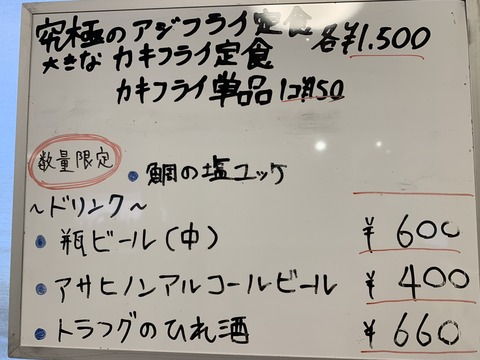 究極のアジフライ定食
各¥1.500
大きな カキフライ定食
カキフライ単品 1コ
数量限定
・鯛の塩ユッケ
~ドリンク~
・瓶ビール(中) ¥600
・アサヒノンアルコールビール ¥400
・トラフグのひれ酒 ¥660